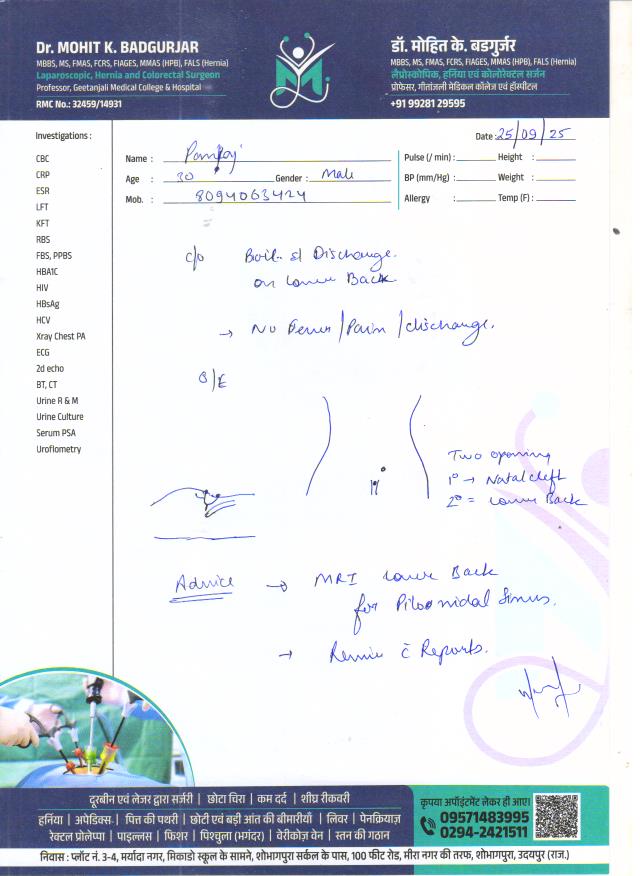 Dr. MOHIT K. BADGURJAR
MBBS, MS, FMAS, FCRS, FIAGES, MMAS (HPB), FALS (Hernia)
Laparoscopic, Hernia and Colorectal Surgeon
Professor, Geetanjali Medical College & Hospital
RMC No.: 32459/14931
डॉ. मोहित के. बडगुर्जर
MBBS, MS, FMAS, FCRS, FIAGES, MMAS (HPB), FALS (Hernia)
लैप्रोस्कोपिक, हर्निया एवं कोलोरेक्टल सर्जन
प्रोफेसर, गीतांजली मेडिकल कॉलेज एवं हॉस्पीटल
+91 99281 29595
Date : 25/09/25
Name : Pankaj
Age : 30 Gender : Male
Mob. : 8094063424
Pulse (/ min) : Height :
BP (mm/Hg) : Weight :
Allergy : Temp (F) :
Investigations :
CBC
CRP
ESR
LFT
KFT
RBS
FBS, PPBS
HBA1C
HIV
HBsAg
HCV
Xray Chest PA
ECG
2d echo
BT, CT
Urine R & M
Urine Culture
Serum PSA
Uroflometry
c/o Boil Discharge.
on Lower Back
→ No Fever / Pain / discharge.
O/E
Two opening
1° → Natal cleft
2° = Lower Back
Advice → MRI Lower Back
for Pilonidal Sinus.
→ Review c̄ Reports.
दूरबीन एवं लेजर द्वारा सर्जरी | छोटा चिरा | कम दर्द | शीघ्र रीकवरी
हर्निया | अपेडिक्स | पित्त की पथरी | छोटी एवं बड़ी आंत की बीमारीयाँ | लिवर | पेनक्रियाज़
रेक्टल प्रोलेप्पा | पाइल्लस | फिशर | पिश्चुला (भगंदर) | वेरीकोज़ वेन | स्तन की गठान
कृपया अपॉइंटमेंट लेकर ही आए।
09571483995
0294-2421511
निवास : प्लॉट नं. 3-4, मर्यादा नगर, मिकाडो स्कूल के सामने, शोभागपुरा सर्कल के पास, 100 फीट रोड, मीरा नगर की तरफ, शोभागपुरा, उदयपुर (राज.)